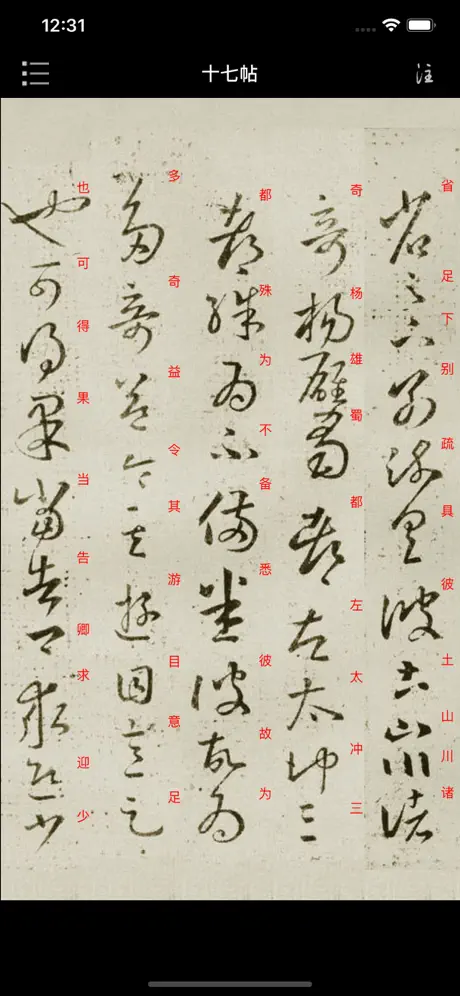 12:31
十七帖
注
省足下别疏具彼土山川诸
奇杨雄蜀都左太冲三
都殊为不备悉彼故为
多奇益令其游目意足
也可得果当告卿求迎少